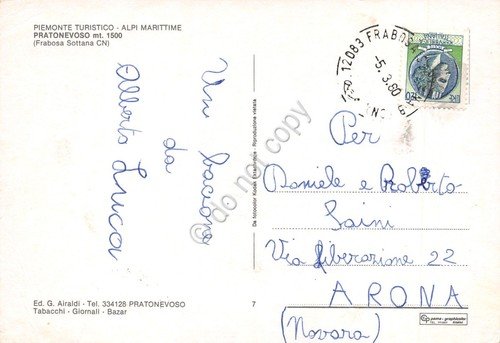 PIEMONTE TURISTICO - ALPI MARITTIME
PRATONEVOSO mt. 1500
(Frabosa Sottana CN)
Un bacione
da
Alberto Luca
Ed. G. Airaldi - Tel. 334128 PRATONEVOSO
Tabacchi - Giornali - Bazar
Da fotocolor Kodak Ektachrome - Riproduzione vietata
7
12083 FRABOSA
-5.3.80
Per
Daniele e Roberto
Saini
Via Liberazione 22
ARONA
(Novara)
© do not copy